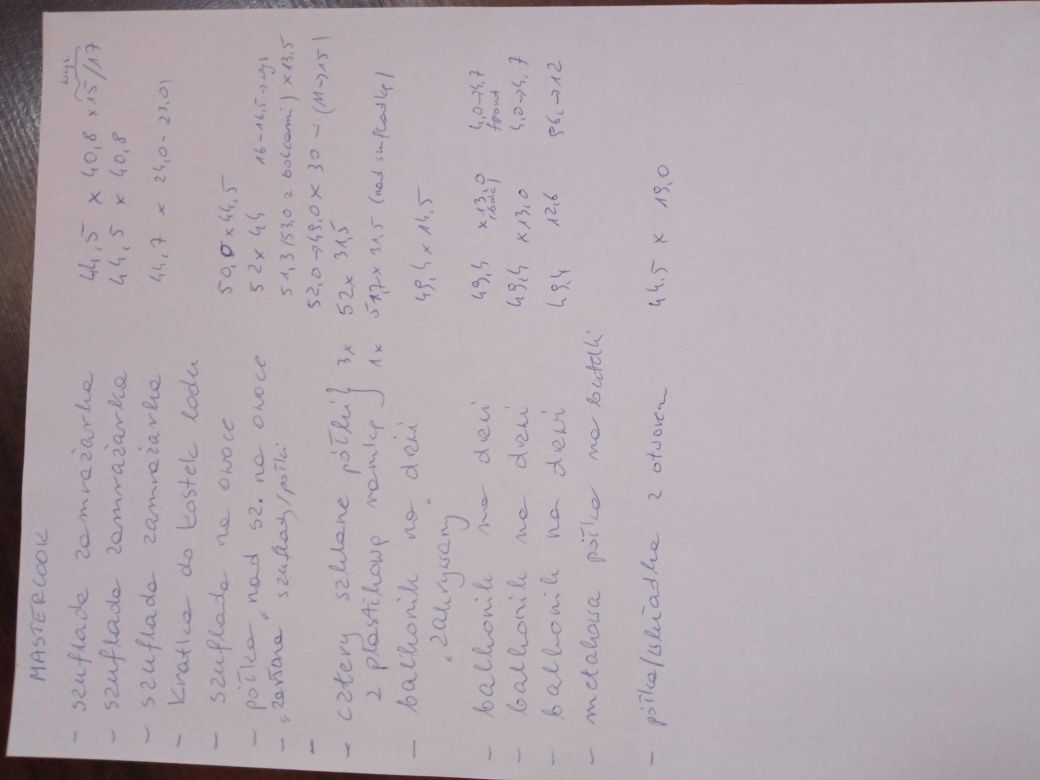 MASTERCOOK
- szuflada zamrażarka 44,5 x 40,8 x 15/17 wys
- szuflada zamrażarka 44,5 x 40,8
- szuflada zamrażarka 44,7 x 24,0 - 23.0)
- kratka do kostek lodu
- szuflada na owoce 50,0 x 44,5
- półka „nad sz. na owoce 52 x 44 16-16,5 → wys
- „zasłona" szuflady/półki 51,3 (53.0 z bolcami) x 13.5
- 52,0 → 49.0 x 30 - (11 → 15)
- cztery szklane półki } 3x 52 x 31,5
z plastikową ramką } 1x 51,7 x 31.5 (nad szufladą)
- balkonik na drzwi 49,4 x 14,5
„zakrywany"
- balkonik na drzwi 49,4 x 13,0 4,0 → 4,7
front
- balkonik na drzwi 49,4 x 13,0 4,0 → 4,7
- balkonik na drzwi 49,4 12,6 → 12
- metalowa półka na butelki
- półka/wkładka z otworem 44.5 x 19,0